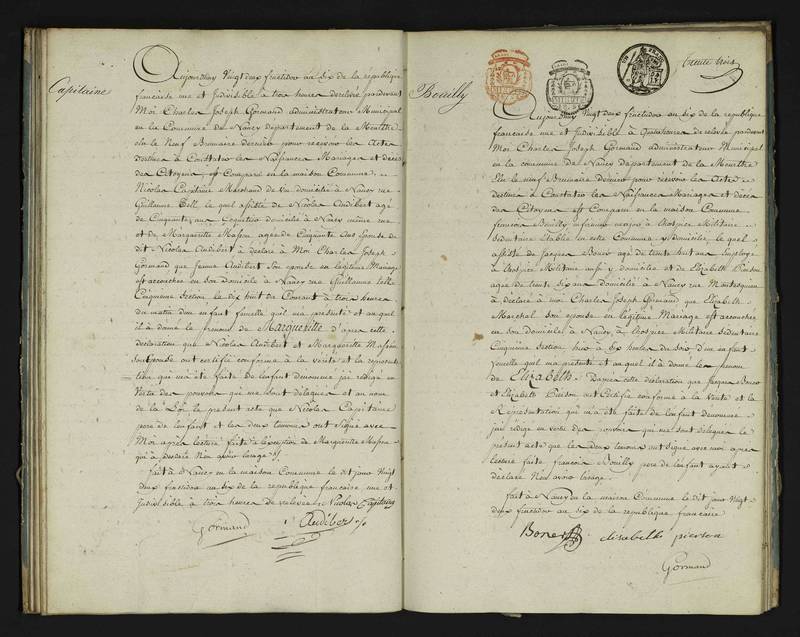 Capitaine
Aujourdhuy Vingt deux fructidor an Six de la republique
francaise une et Indivisible à trois heures de relevée pardevant
Moi Charles Joseph Gormand administrateur Municipal
de la Commune de Nancy departement de la Meurthe
elu le Neuf Brumaire dernier pour recevoir les Actes
destinés à Constater les Naissances Mariages et deces
des Citoyens, est Comparu en la maison Commune
Nicolas Capitaine Marchand de vin domicilié à Nancy rue
Guillaume Tell, le quel assisté de Nicolas Audibert agé
de Cinquante ans domicilié à Nancy même rue
et de Marguerite Masson agée de Cinquante ans Epouse de
dit Nicolas Audibert à déclaré à Moi Charles Joseph
Gormand que Jeanne Audibert son epouse en legitime Mariage
est accouchée en son domicile à Nancy rue Guillaume Telle
Cinquieme Section le dix huit du Courant à trois heures
du matin d'un enfant femelle qu'il m'a presenté et au quel
il à donné le prenom de Marguerite d'apres cette
declaration que Nicolas Audibert et Marguerite Masson
son Epouse ont certifié conforme à la vérité et la represent-
ation qui m'a eté faite de l'enfant denommé j'ai rédigé en
Vertu des pouvoirs qui me sont délégués et au nom
de la Loi le present acte que Nicolas Capitaine
pere de l'enfant et les deux temoins ont Signé avec
Moi après lecture faite à l'exception de Marguerite Masson
qui à déclaré n'en avoir l'usage
fait à Nancy en la maison Commune le dit jour Vingt
deux fructidor an six de la republique francaise une et
Indivisible à trois heures de relevée Nicolas Capitaine
Gormand Audibert
Trente trois
Bouilly
Aujourdhuy Vingt deux fructidor an six de la republique
francaise une et Indivisible à quatre heures de relevée pardevant
Moi Charles Joseph Gormand administrateur Municipal
en la commune de Nancy departement de la Meurthe
Elu le neuf Brumaire dernier pour recevoir les Actes
destinés à Constater les Naissances Mariages et décès
des Citoyens est Comparu en la maison Commune
francois Bouilly infirmier à l'hospice Militaire
Sedentaire Etablie en cette Commune y domicilié, le quel
assisté de Jacques age de trente huit ans Employé
à l'hospice Militaire aussi y domicilié et de Elizabeth
agée de trente six ans domiciliée à Nancy rue Montesquieu
à déclaré à moi Charles Joseph Gormand que Elizabeth
Marchal son epouse en legitime Mariage est accouchée
en son domicile à Nancy à l'hospice Militaire sedentaire
Cinquieme Section hier à Six heures du Soir d'un enfant
femelle quil ma presenté et au quel il à donné le prenom
de Elizabeth. Dapres cette déclaration que Jacques
et Elizabeth ont Certifié conforme à la Verité et la
Representation qui m'a eté faite de l'enfant denommé
jai rédigé en vertu des pouvoirs qui me sont délégués le
présent acte que les deux temoins ont signé avec moi apres
lecture faite francois Bouilly pere de l'enfant ayant
déclaré N'en avoir l'usage.
fait à Nancy en la maison Commune le dit jour Vingt
deux fructidor an six de la republique francaise
elisabethe pierson
Gormand